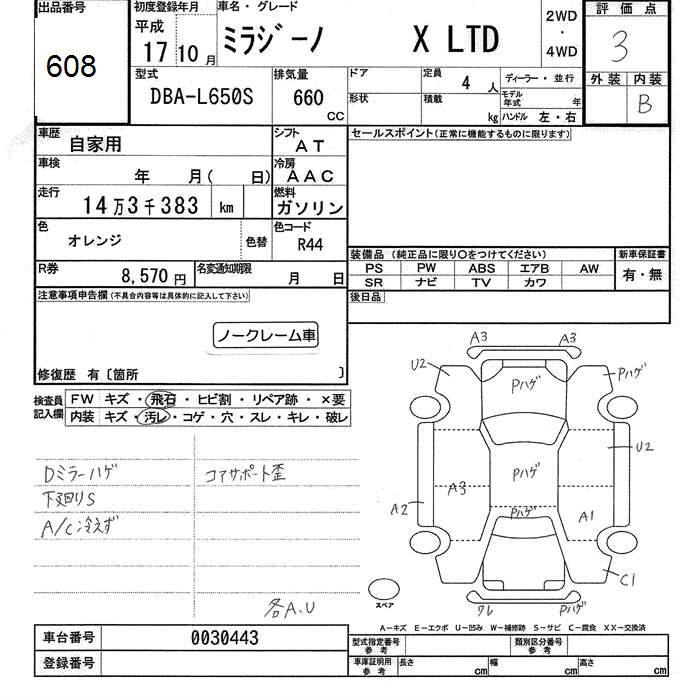 出品番号
608
初度登録年月
平成
17 10月
車名・グレード
ミラジーノ X LTD
2WD
・
4WD
評価点
3
外装 内装
B
型式
DBA-L650S
排気量
660
CC
ドア
形状
定員
4 人
積載
kg
ディーラー・並行
モデル年式 年
ハンドル 左・右
車歴
自家用
シフト
AT
車検
年 月( 日)
冷房
AAC
走行
14万3千383 km
燃料
ガソリン
色
オレンジ
色替
色コード
R44
R券
8,570円
名変通知期限
月 日
セールスポイント(正常に機能するものに限ります)
装備品(純正品に限り○をつけてください)
PS PW ABS エアB AW
SR ナビ TV カワ
新車保証書
有・無
後日品
注意事項申告欄(不具合内容等は具体的に記入して下さい)
ノークレーム車
修復歴 有〔箇所 〕
検査員記入欄
FW キズ・飛石・ヒビ割・リペア跡・×要
内装 キズ・汚レ・コゲ・穴・スレ・キレ・破レ
Dミラーハゲ
コアサポート歪
下廻りS
A/C冷えず
各A.U
A3 A3
U2 Pハゲ Pハゲ
U2
A3 Pハゲ
A2 Pハゲ A1
C1
ワレ Pハゲ
スペア
A-キズ E-エクボ U-凹み W-補修跡 S-サビ C-腐食 XX-交換済
車台番号 0030443
登録番号
型式指定番号参考
類別区分番号参考
車庫証明用参考
長さ cm 幅 cm 高さ cm